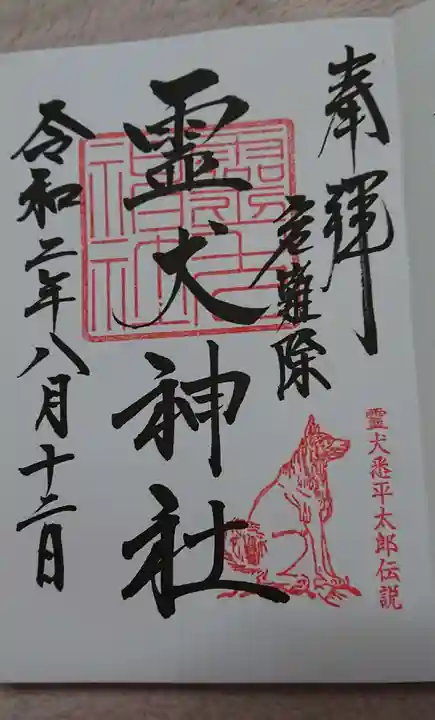 奉拝
危難除
霊犬神社
霊犬悉平太郎伝説
令和二年八月十二日